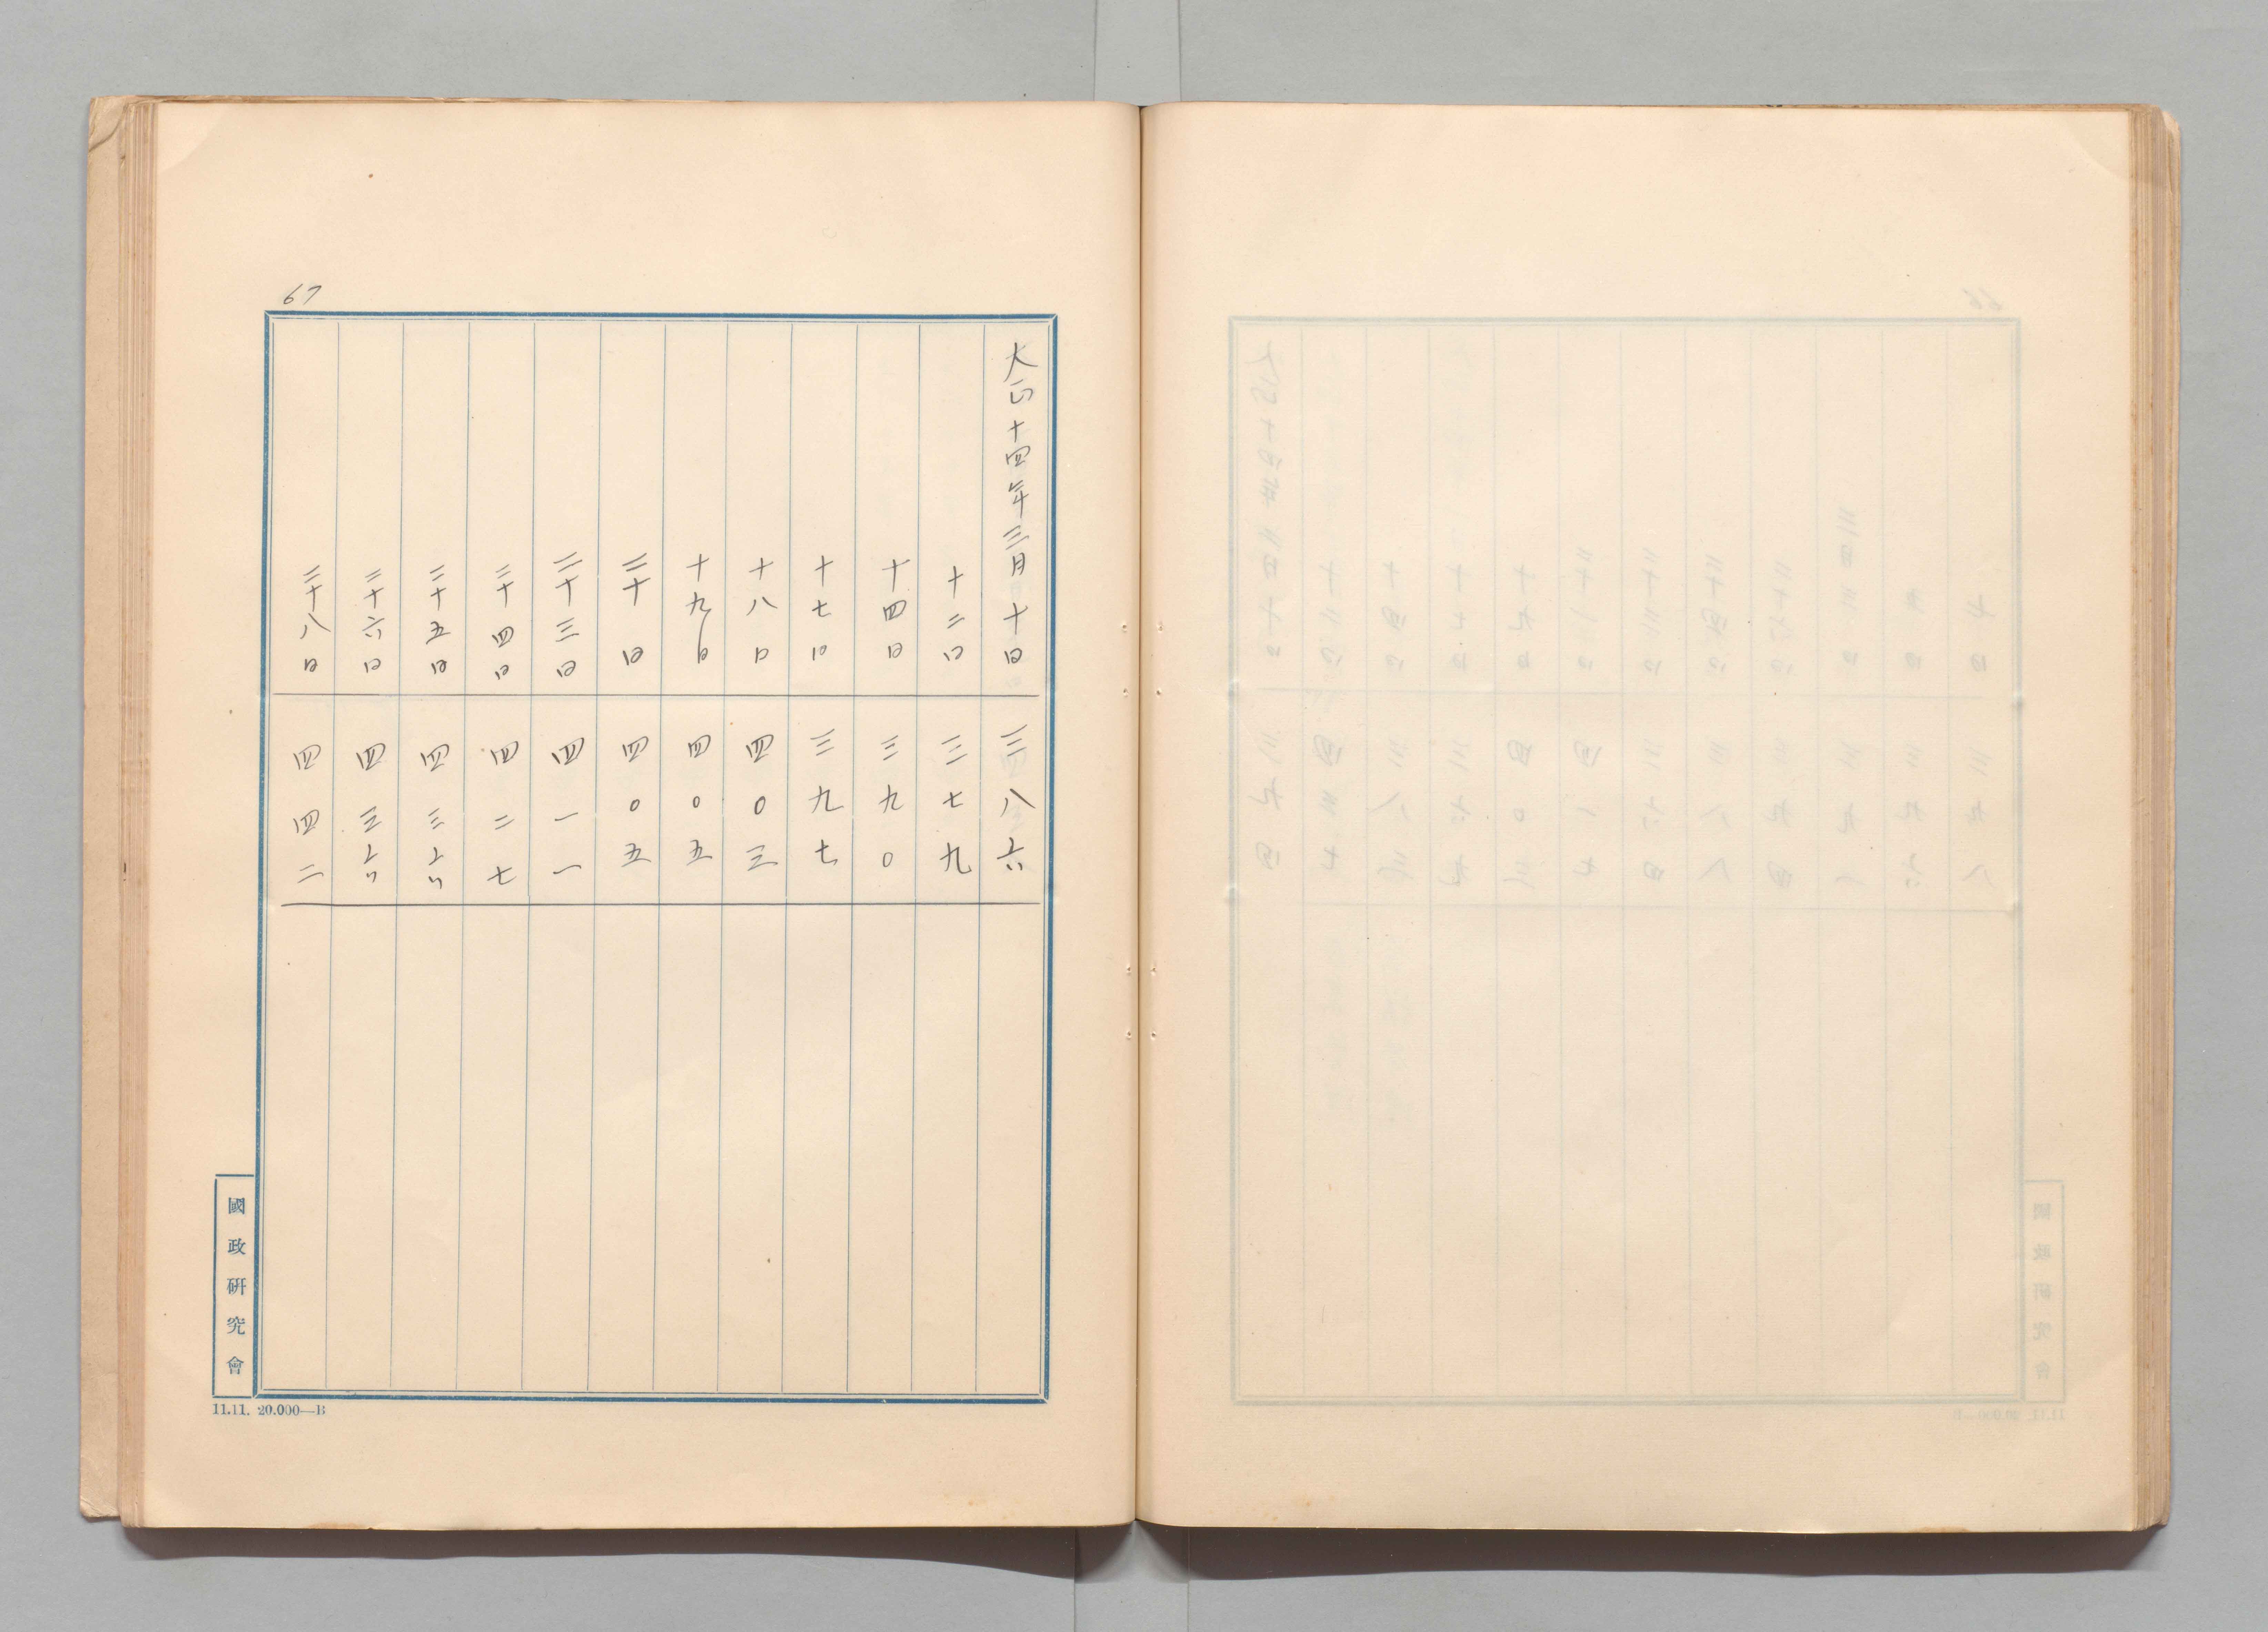 67
大正十四年三月十日 三八六
十二日 三七九
十四日 三九〇
十七日 三九七
十八日 四〇三
十九日 四〇五
二十日 四〇五
二十三日 四一一
二十四日 四二七
二十五日 四三六
二十六日 四三六
二十八日 四四二
國政研究會
11.11. 20.000—B